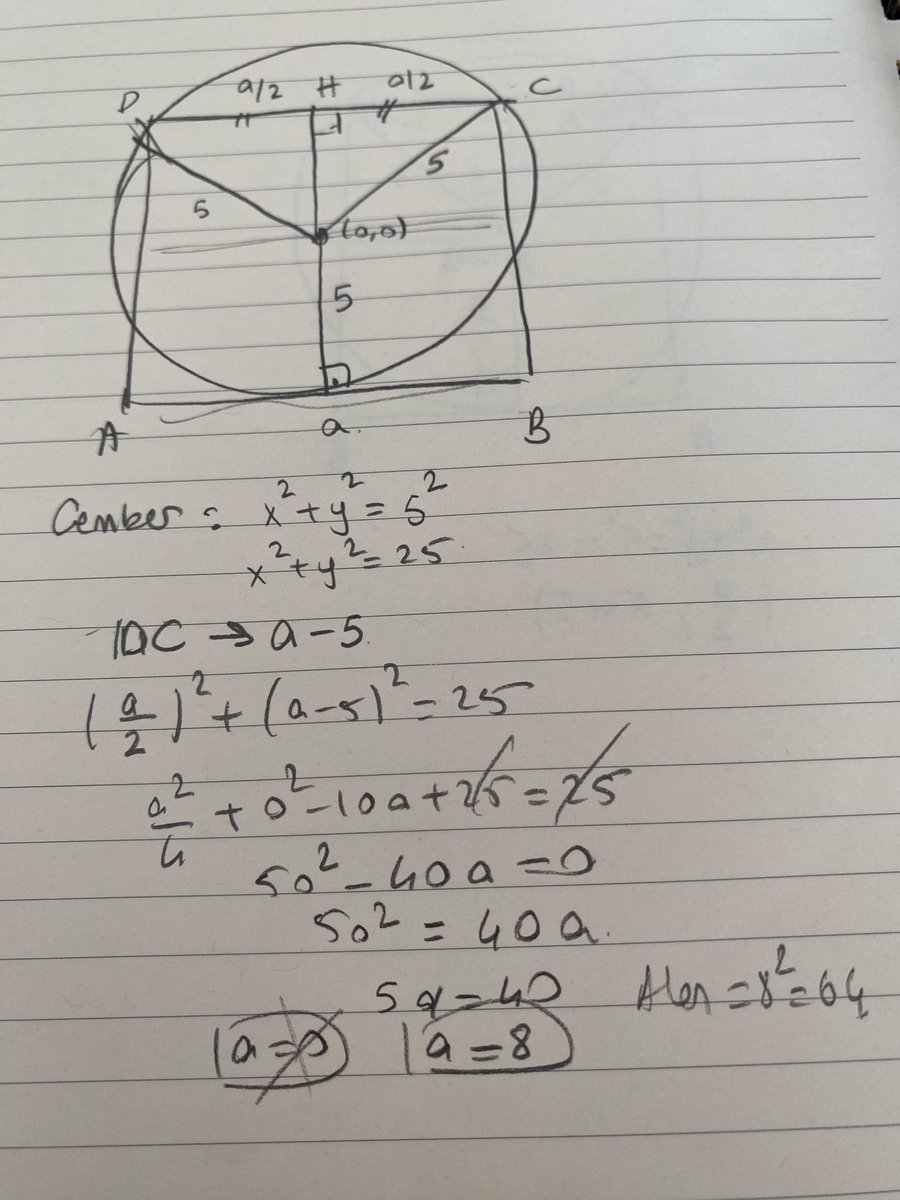 a/2 H a/2
D C
5 5
(0,0)
5
A a B
Cember: x² + y² = 5²
x² + y² = 25
|DC → a - 5
(a/2)² + (a-5)² = 25
a²/4 + a² - 10a + 25 = 25
5a² - 40a = 0
5a² = 40a.
5a = 40 Alan = 8² = 64
a = 0 a = 8